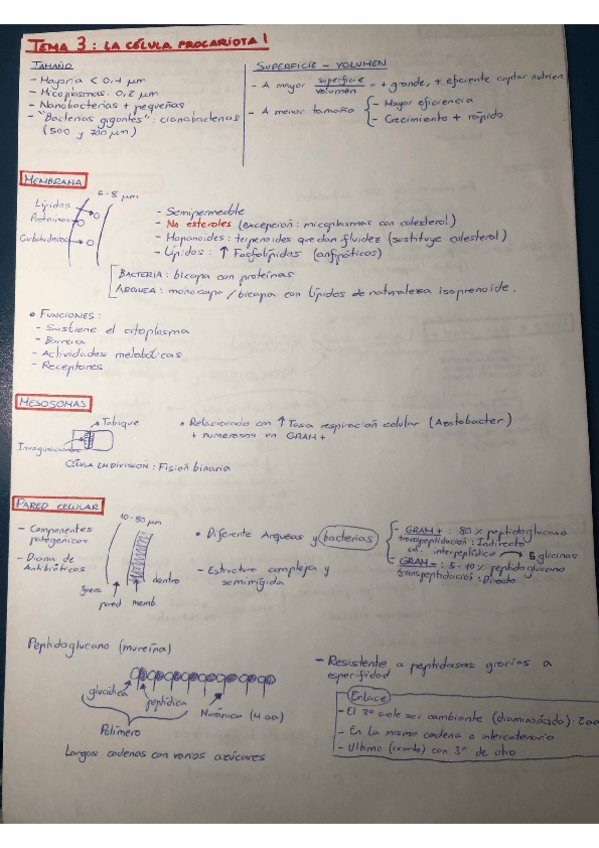 TEMA 3: LA CÉLULA PROCARIOTA I
TAMAÑO
- Mayoría < 0,4 μm
- Micoplasmas: 0,2 μm
- Nanobacterias + pequeñas
- "Bacterias gigantes": cianobacterias
(500 y 700 μm)
SUPERFICIE - VOLUMEN
- A mayor superficie/volumen = + grande, + eficiente captar nutrien.
- A menor tamaño
- Mayor eficiencia
- Crecimiento + rápido
MEMBRANA
6-8 μm
Lípidos
Proteínas
Carbohidratos
- Semipermeable
- No esteroles (excepción: micoplasmas con colesterol)
- Hopanoides: terpenoides que dan fluidez (sustituye colesterol)
- Lípidos: ↑ Fosfolípidos (anfipáticos)
BACTERIA: bicapa con proteínas
ARQUEA: monocapa / bicapa con lípidos de naturaleza isoprenoide.
• FUNCIONES:
- Sustiene el citoplasma
- Barrera
- Actividades metabólicas
- Receptores
MESOSOMAS
Tabique
Invaginaciones
CÉLULA EN DIVISIÓN: Fisión binaria
• Relacionado con ↑ Tasa respiración celular (Azotobacter)
+ numerosos en GRAM +
PARED CELULAR
- Componentes patogénicos
- Diana de Antibióticos
10-80 μm
fuera
pared
memb.
dentro
• Diferente Arqueas y bacterias
- Estructura compleja y
semirrígida
- GRAM +: 80 % peptidoglucano
transpeptidación: Indirecto
interpeptídico → 5 glicinas
- GRAM -: 5-10 % peptidoglucano
transpeptidación: Directo
Peptidoglucano (mureína)
glucídica
peptídica
Murámico (4 aa)
Polímero
Largas cadenas con varios azúcares
- Resistente a peptidasas gracias a
especifidad
Enlace
- El 3º suele ser cambiante (diaminoácido): 2aa
- En la misma cadena o intercatenaria
- Ultimo (cuarto) con 3º de otro